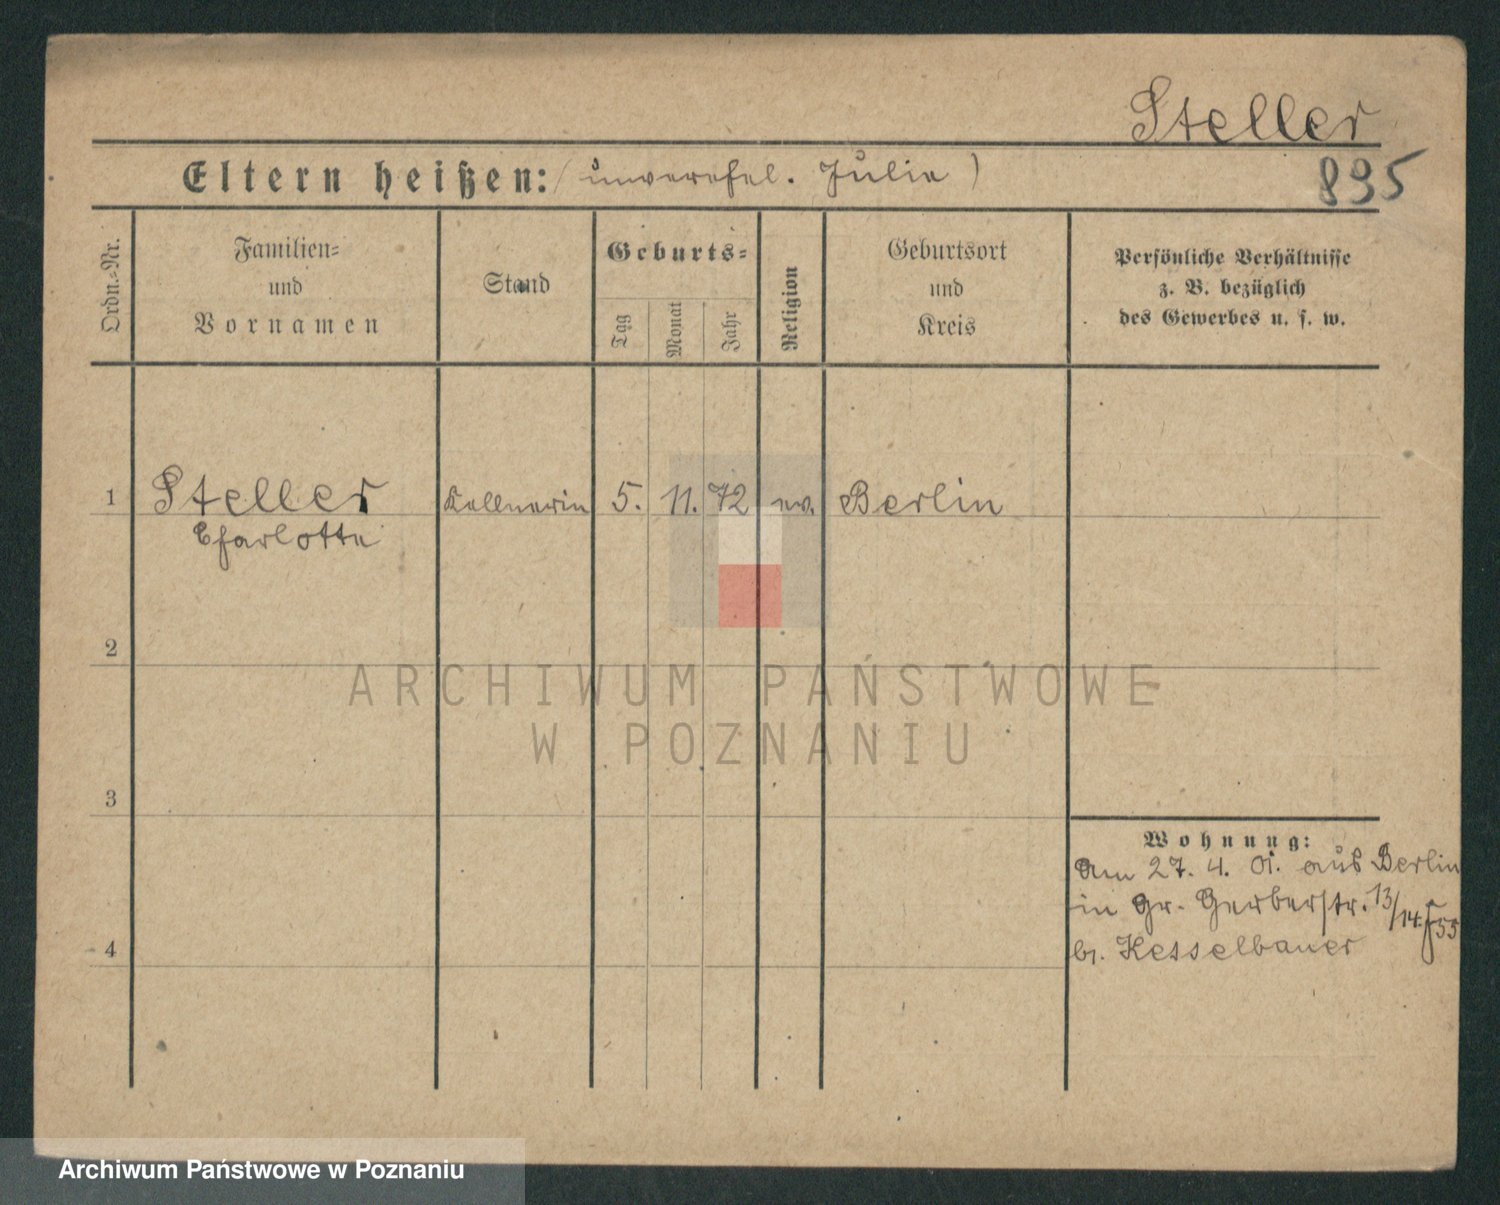 Steller
Eltern heißen: (unverehel. Julie)
895
Ordn.-Nr.
Familien-
und
Vornamen
Stand
Geburts-
Tag
Monat
Jahr
Religion
Geburtsort
und
Kreis
Persönliche Verhältnisse
z. B. bezüglich
des Gewerbes u. s. w.
1 Steller Kellnerin 5. 11. 72 ev. Berlin
Charlotte
2
ARCHIWUM PAŃSTWOWE
W POZNANIU
3
Wohnung:
Am 27. 4. 01. aus Berlin
in Gr. Gerberstr. 13/14. F55
4
b. Kesselbauer
Archiwum Państwowe w Poznaniu